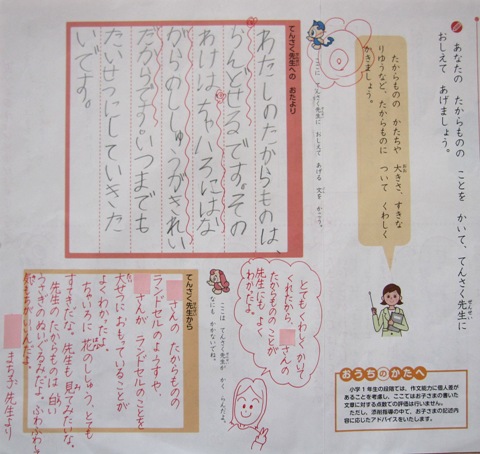 あなたの たからものの ことを かいて、てんさく先生に
おしえて あげましょう。
たからものの かたちや 大きさ、すきな
りゆうなど、たからものに ついて くわしく
かきましょう。
ここに てんさく先生に おしえて あげる 文を かこう。
てんさく先生への おたより
わたしのたからものは、
らんどせるです。その
わけはちゃいろにはな
がらのししゅうがきれい
だからです。いつまでも
たいせつにしていきた
いです。
とても くわしく かいて
くれたから さんの
たからものの ことが
先生にも よく
わかったよ。
ここは てんさく先生が かく らんだよ。
なにも かかないでね。
てんさく先生から
さんの たからものの
ランドセルのようすや、
さんが ランドセルのことを
大せつにおもっていることが
よくわかったよ。
ちゃいろに 花のししゅう、とても
すてきだな。先生も 見てみたいな。
先生の たからものは 白い
うさぎのぬいぐるみだよ。ふわふわで
気もちがいいんだよ。
まち子 先生より
おうちのかたへ
小学1年生の段階では、作文能力に個人差が
あることを考慮し、ここではお子さまの書いた
文章に対する点数での評価は行いません。
ただし、添削指導の中で、お子さまの記述内容
に応じたアドバイスをいたします。